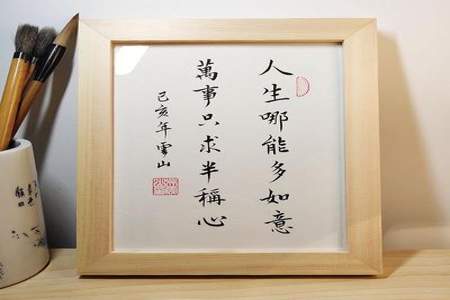 人生哪能多如意
萬事只求半稱心
己亥年雪山